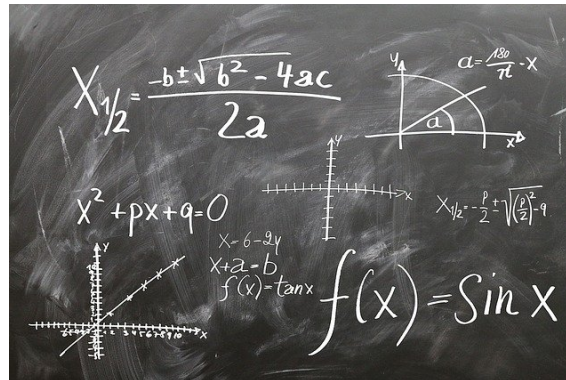 X₁/₂ = (-b±√(b² - 4ac))/2a
y
a = 180/π · x
a
x
y
x
x² + px + q = 0
X₁/₂ = -p/2 ± √((p/2)² - q)
x = 6 - 2y
x + a = b
f(x) = tan x
f(x) = Sin x
y
x